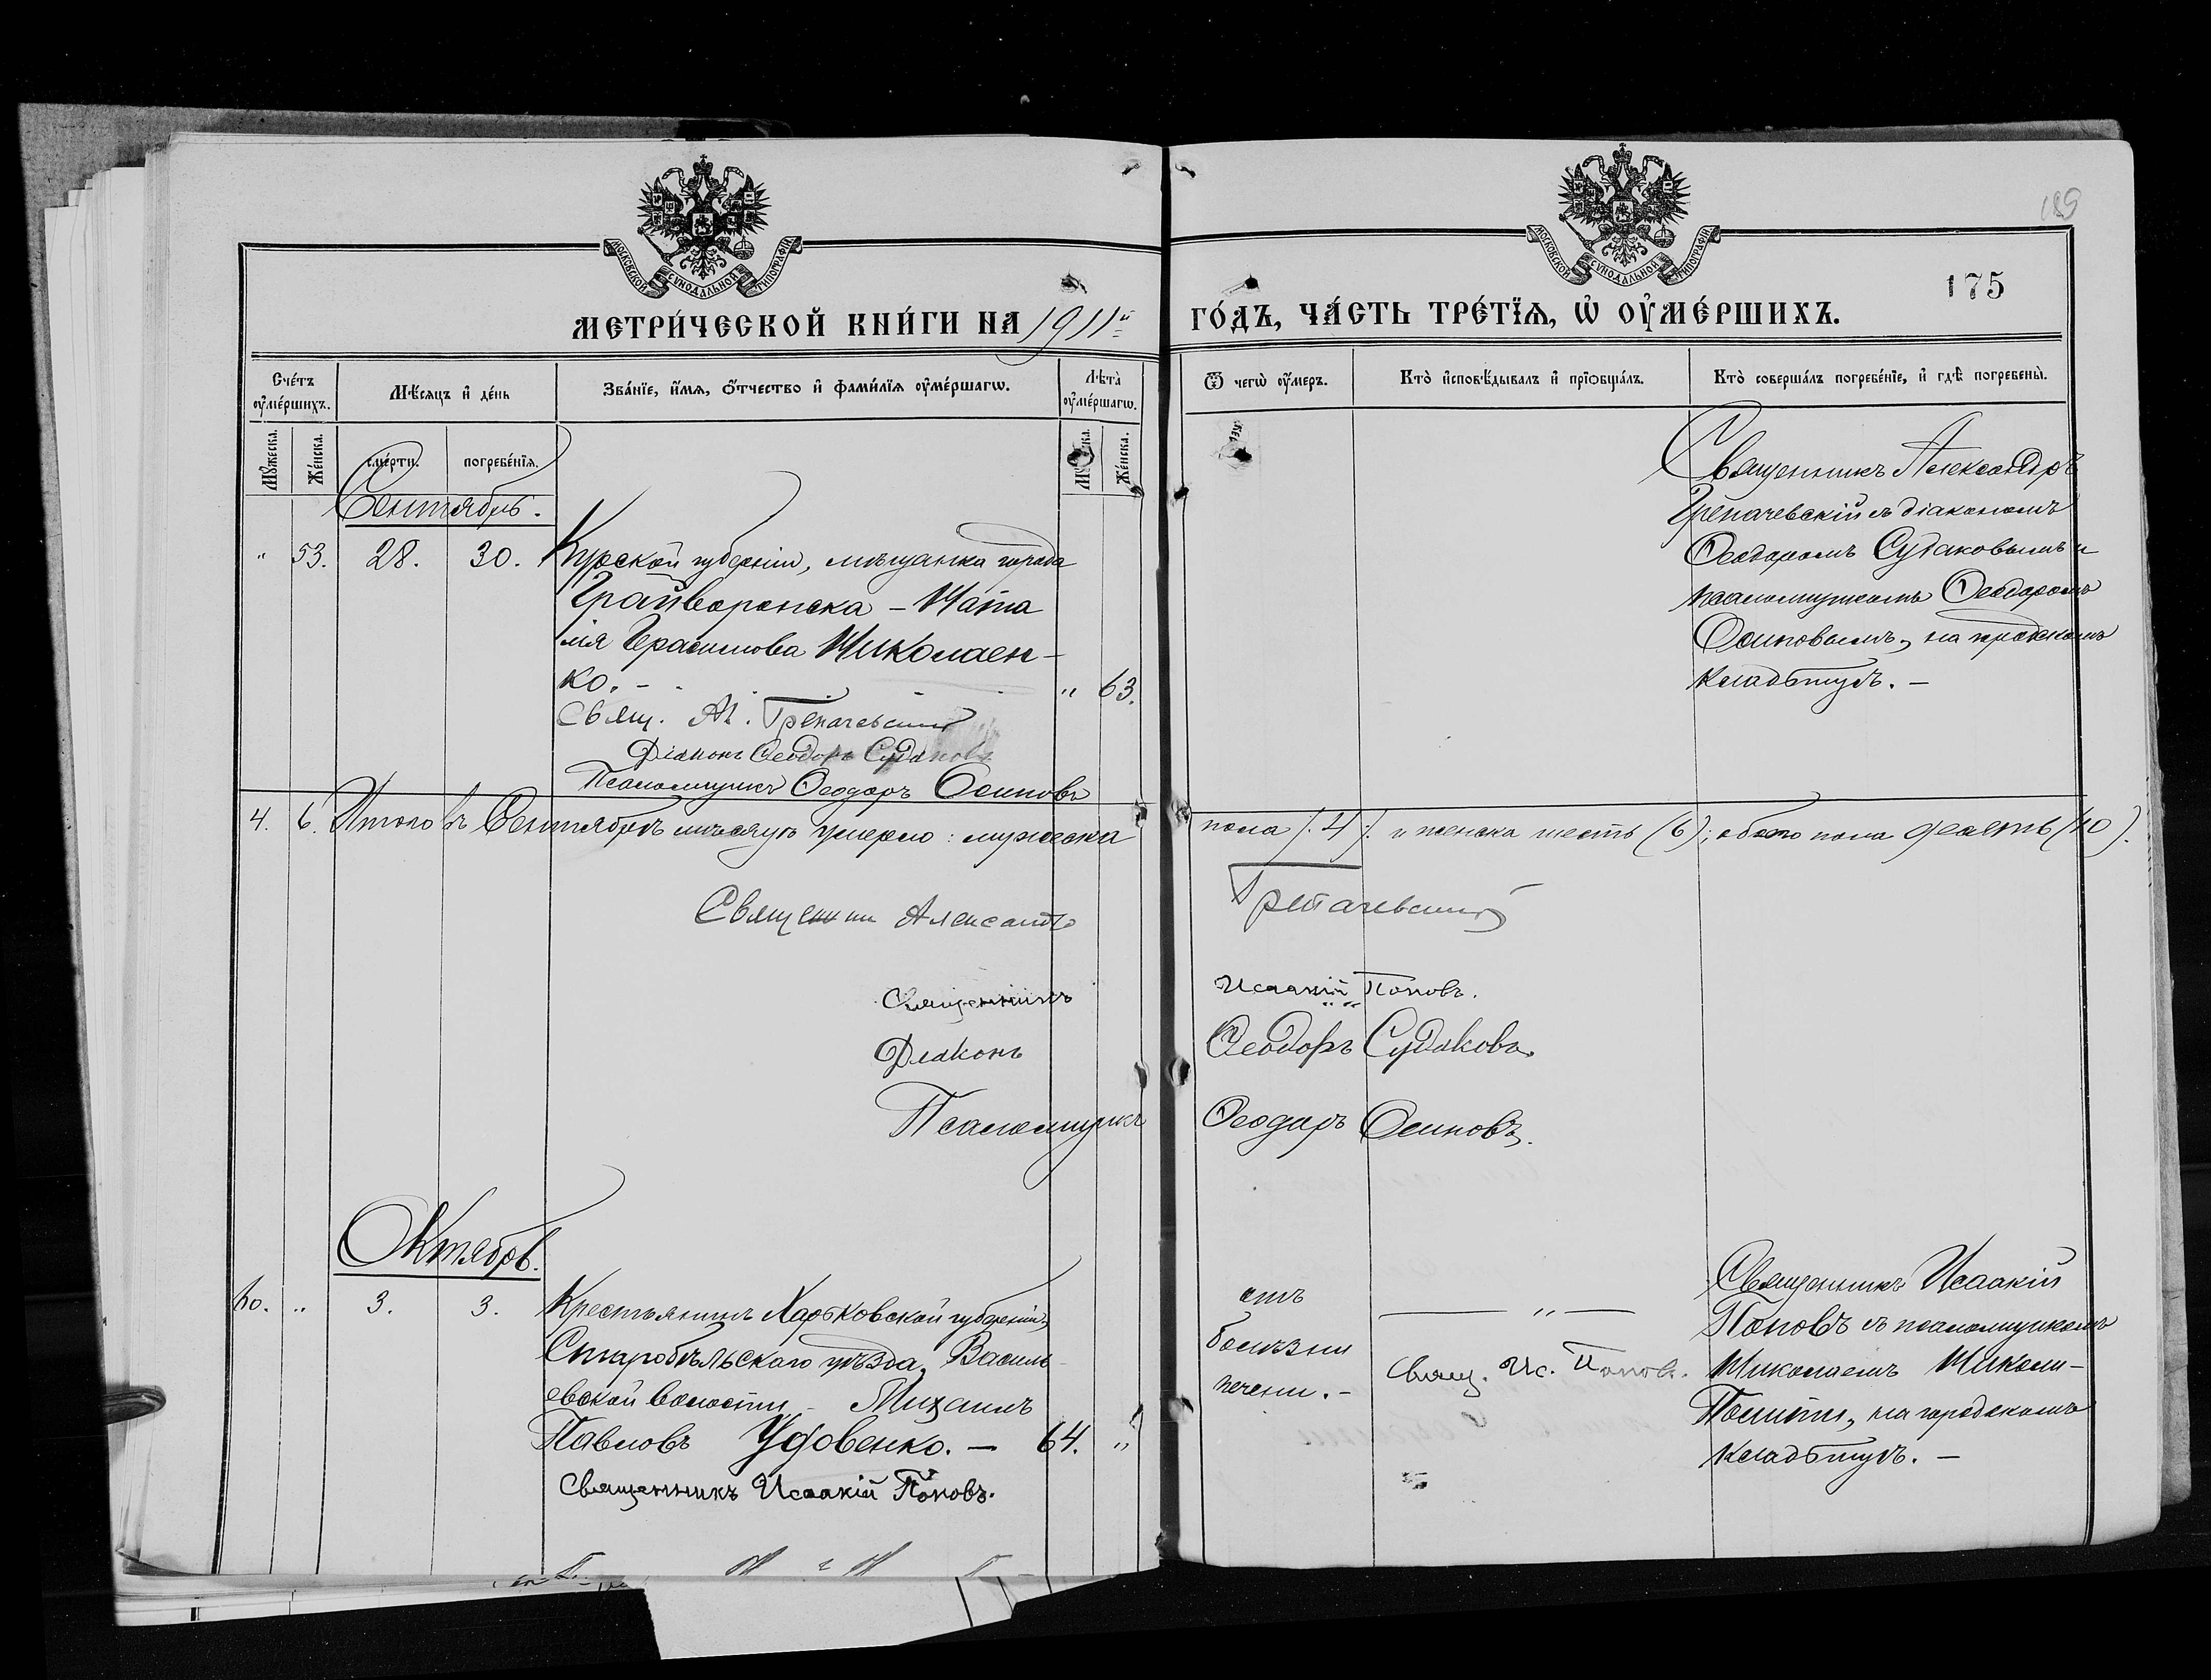 МОСКОВСКОЙ СУНОДАЛЬНОЙ ТИПОГРАФІИ
МОСКОВСКОЙ СУНОДАЛЬНОЙ ТИПОГРАФІИ
189
175
МЕТРИ́ЧЕСКОЙ КНИ́ГИ НА 1911й
ГО́ДЪ, ЧА́СТЬ ТРЕ́ТЇѦ, Ѡ҆ ОУ҆МЕ́РШИХЪ.
Сче́тъ оумершихъ.
Мѣ́сѧцъ и҆ де́нь
Зва́нїе, и҆́мѧ, ѻ҆́тчество и҆ фами́лїѧ оу҆ме́ршагѡ.
Лѣта̀ оу҆ме́ршагѡ.
Ѿ чегѡ̀ оу҆́меръ.
Кто̀ и҆сповѣ́дывалъ и҆ прїѡбща́лъ.
Кто̀ соверша́лъ погребе́нїе, и҆ гдѣ̀ погребены̀.
Мꙋ́жеска.
Же́нска.
сме́рти.
погребе́нїѧ.
Же́нска.
Сентябрь.
" 53. 28. 30. Курской губерніи, мѣщанка города
Грайворонска - Ната
лія Герасимова Николаен-
ко. - " 63.
Свящ. Ал. Грепачевскій
Діаконъ Ѳеодоръ Судаковъ
Псаломщикъ Ѳеодоръ Осиповъ
Священникъ Александръ
Грепачевскій съ діакономъ
Ѳеодоромъ Судаковымъ и
псаломщикомъ Ѳеодоромъ
Осиповымъ, на городскомъ
кладбищѣ. -
4. 6. Итого въ Сентябрѣ мѣсяцѣ умерло: мужеска пола /. 4 /. и женска шесть (6); обоего пола десять (10).
Священникъ Александръ Грепачевскій
Священникъ Исаакій Поповъ.
Діаконъ Ѳеодоръ Судаковъ.
Псаломщикъ Ѳеодоръ Осиповъ.
Октябрь.
60. " 3. 3. Крестьянинъ Харьковской губерніи,
Старобѣльскаго уѣзда, Василь-
евской волости, - Михаилъ
Павловъ Удовенко. - 64. "
Священникъ Исаакій Поповъ.
отъ
болѣзни
печени. -
"
Свящ. Ис. Поповъ.
Священникъ Исаакій
Поповъ съ псаломщикомъ
Николаемъ
на городскомъ
кладбищѣ. -